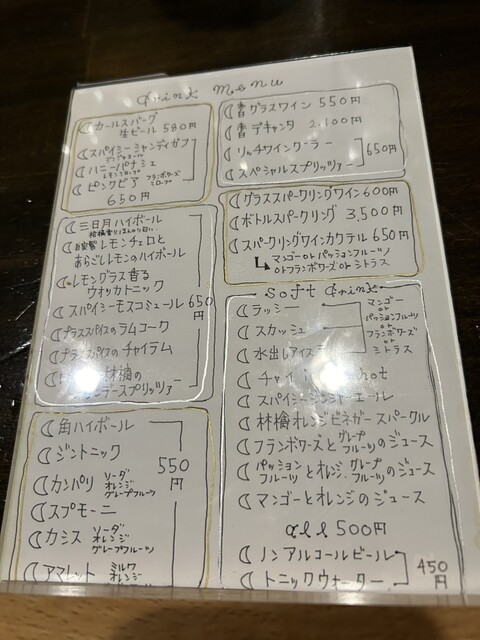 drink menu
カールスバーグ
生ビール 580円
スパイシーシャンディガフ
ハニーパナシェ
ピンクビア フランボワーズ
シロップ
650円
三日月ハイボール
自家製レモンチェロと
あらごしレモンのハイボール
レモングラス香る
ウォッカトニック
スパイシーモスコミュール 650円
プラススパイスのラムコーク
プラススパイスのチャイテム
林檎の
ースプリッツァー
角ハイボール
ジントニック
カンパリ ソーダ
オレンジ
グレープフルーツ
スプモーニ
カシス ソーダ
オレンジ
グレープフルーツ
アマレット ミルク
オレンジ
550円
グラスワイン 550円
デキャンタ 2,100円
リッチワインクーラー
スペシャルスプリッツァー
650円
グラススパークリングワイン 600円
ボトルスパークリング 3,500円
スパークリングワインカクテル 650円
マンゴー or パッションフルーツ
or フランボワーズ or シトラス
soft drink
ラッシー
スカッシュ
水出しアイス
マンゴー
or
パッションフルーツ
or
フランボワーズ
or
シトラス
チャイ hot
スパイシージンジャーエール
林檎オレンジビネガースパークル
フランボワーズとグレープフルーツのジュース
パッションフルーツとオレンジ、グレープフルーツのジュース
マンゴーとオレンジのジュース
all 500円
ノンアルコールビール
トニックウォーター
450円